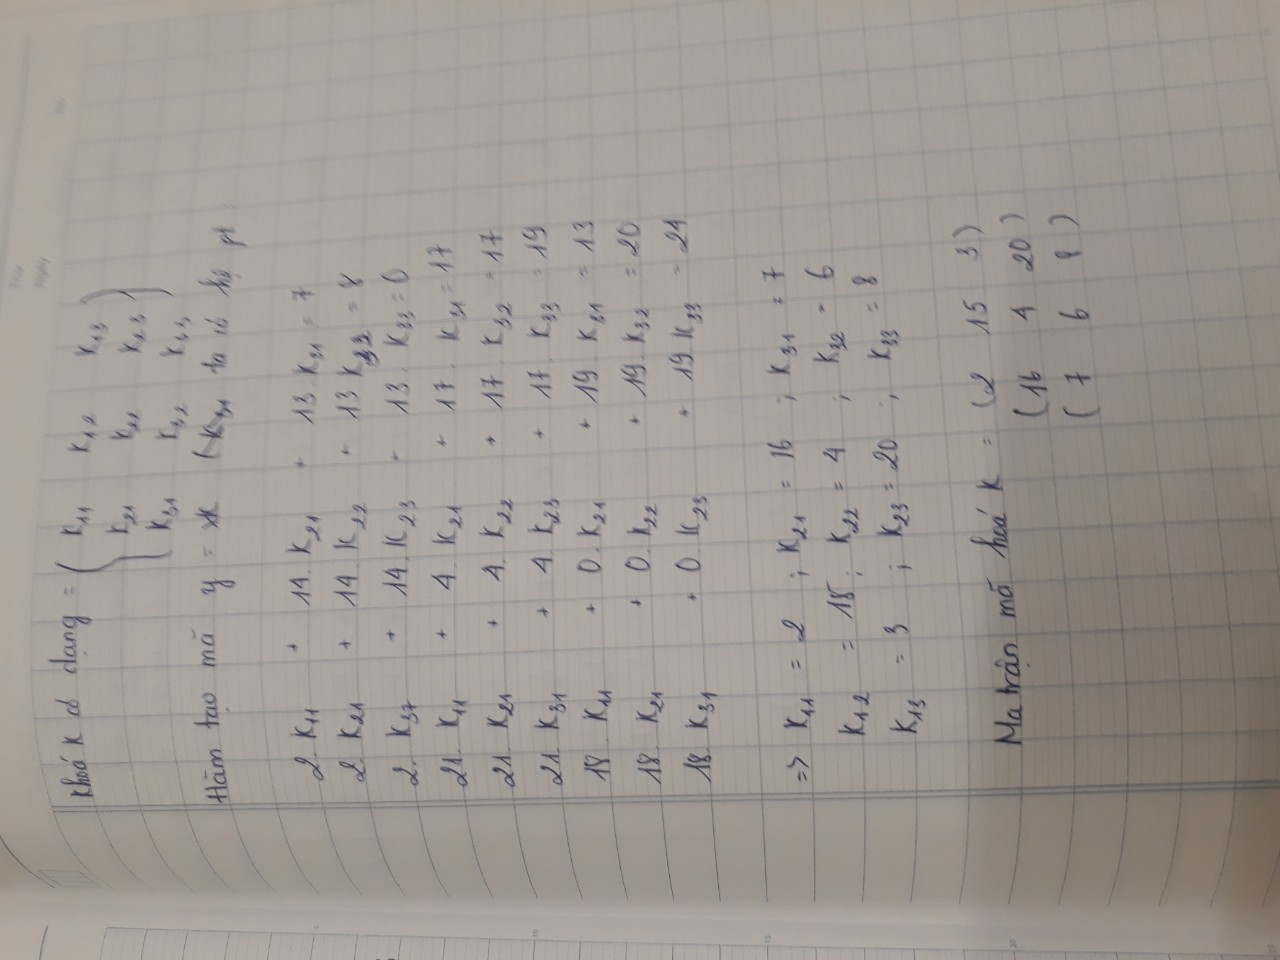 Khoá K có dạng = ( K11 K12 K13 )
( K21 K22 K23 )
( K31 K32 K33 )
Hàm tạo mã y = xK ta có hệ pt
2. K11 + 14. K21 + 13. K31 = 7
2. K21 + 14. K22 + 13 K32 = 8
2. K37 + 14. K23 + 13. K33 = 0
21. K11 + 4. K21 + 17. K31 = 17
21. K21 + 4. K22 + 17 K32 = 17
21. K31 + 4. K23 + 17. K33 = 19
18. K11 + 0. K21 + 19. K31 = 13
18. K21 + 0. K22 + 19. K32 = 20
18. K31 + 0. K23 + 19. K33 = 24
=> K11 = 2 ; K21 = 16 ; K31 = 7
K12 = 15 ; K22 = 4 ; K32 = 6
K13 = 3 ; K23 = 20 ; K33 = 8
Ma trận mã hoá K = (2 15 3)
(16 4 20)
(7 6 8)